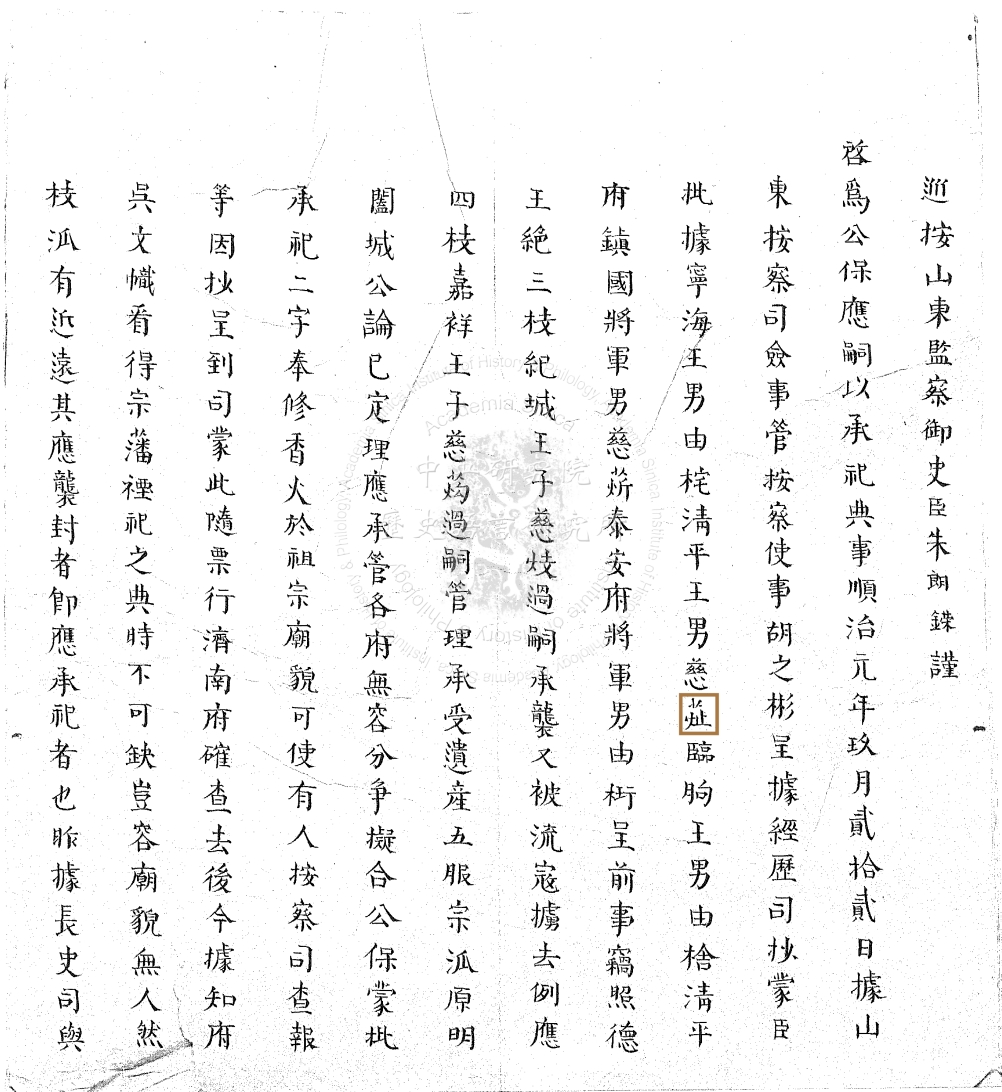 巡按山東監察御史臣朱朗鑅謹
啓爲公保應嗣以承祀典事順治元年玖月貳拾貳日據山
東按察司僉事管按察使事胡之彬呈據經歷司抄蒙臣
批據寧海王男由椗淸平王男慈㶥臨朐王男由桧淸平
府鎮國將軍男慈㶳泰安府將軍男由桁呈前事竊照德
王絶三枝紀城王子慈㶬過嗣承襲又被流寇擄去例應
四枝嘉祥王子慈過嗣管理承受遺産五服宗泒原明
闔城公論已定理應承管各府無容分爭擬合公保蒙批
承祀二字奉修香火於祖宗廟貌可使有人按察司查報
等因抄呈到司蒙此隨票行濟南府確查去後今據知府
吳文幟看得宗藩禋祀之典時不可缺豈容廟貌無人然
枝泒有近遠其應襲封者卽應承祀者也昨據長史司與
中央研究院
歷史語言研究所
Institute of History & Philology, Academia Sinica